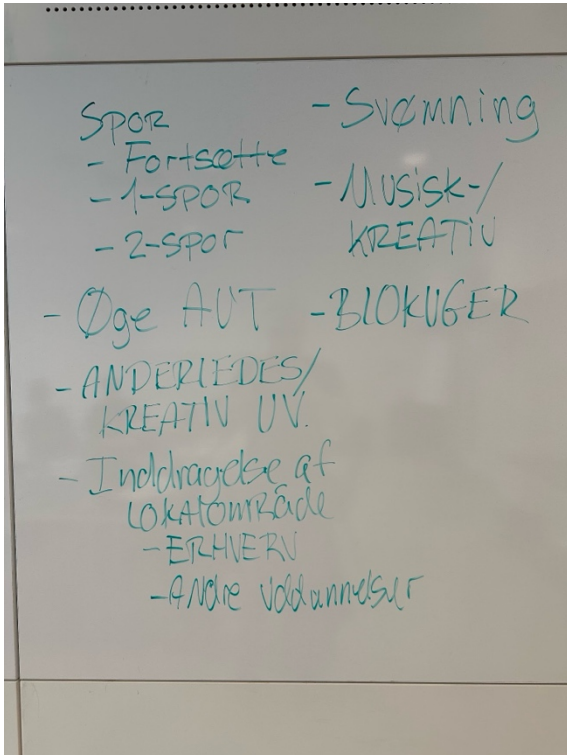 SPOR
- Fortsætte
- 1-SPOR
- 2-SPOr
- Øge AUT
- ANDERLEDES/
KREATIV UV.
- Inddragelse af
LOKALOMRÅde
- ERHVERV
- ANDre Uddannelser
- Svømning
- MUSisk-/
KREATIV
- BLOKUGER